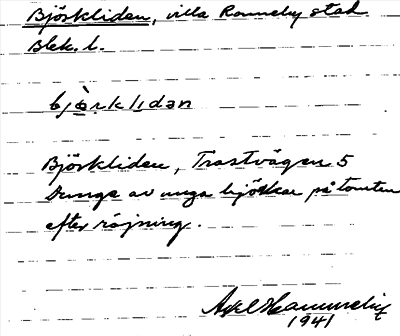 Björkliden, villa Ronneby stad
Blek. l.
bjö̀rklıdən
Björkliden, Trastvägen 5
Dunge av unga björkar på tomten
efter röjning.
Axel
1941